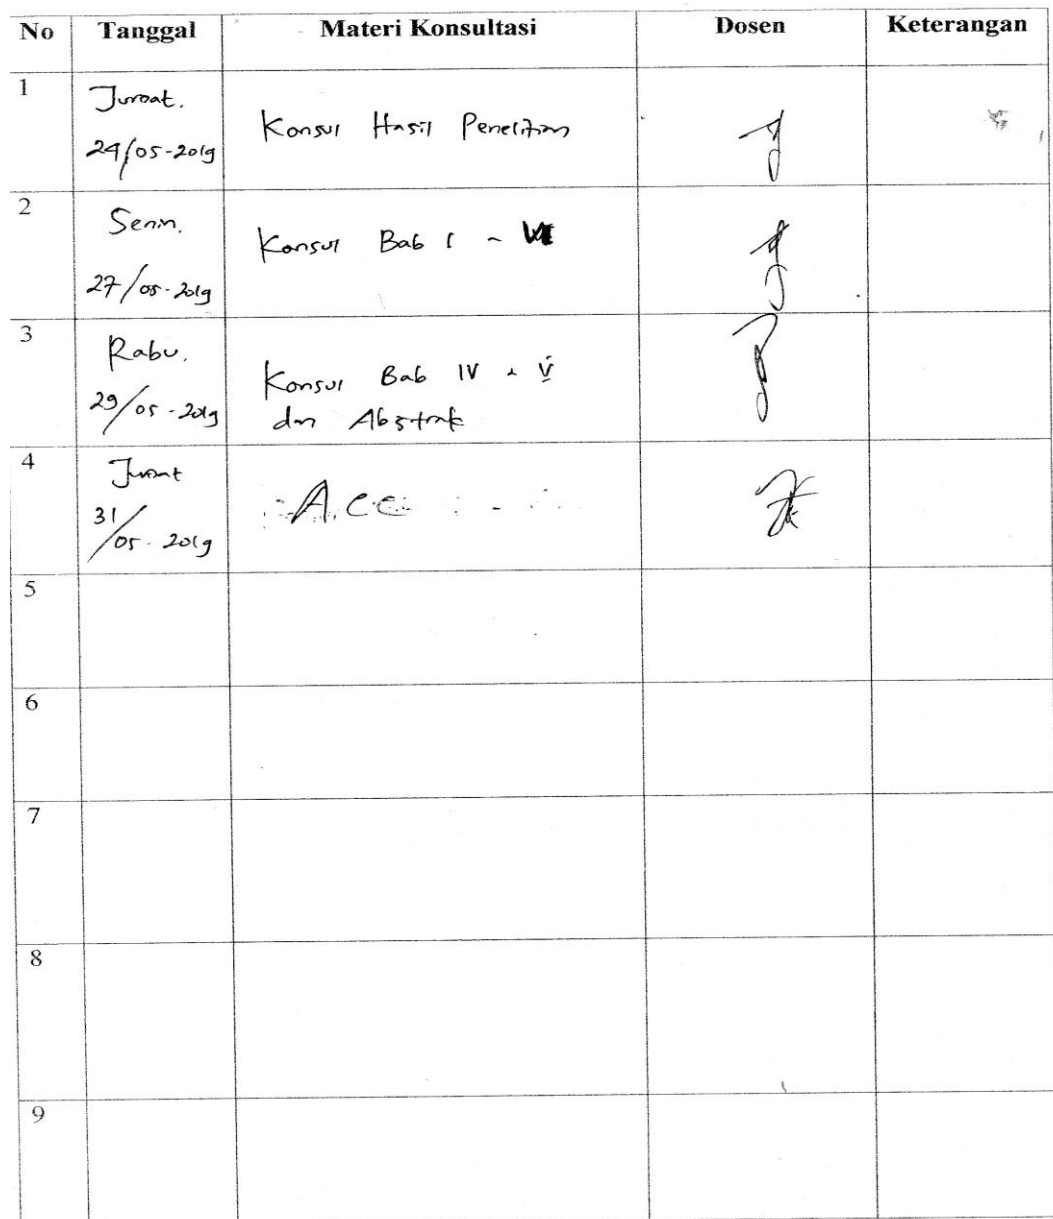 No Tanggal Materi Konsultasi Dosen Keterangan
1 Jumat.
24/05-2019
Konsul Hasil Penelitian
2 Senin.
27/05-2019
Konsul Bab I -
3 Rabu.
29/05-2019
Konsul Bab IV & V
dan Abstrak
4 Jumat
31/05-2019
Acc
5
6
7
8
9